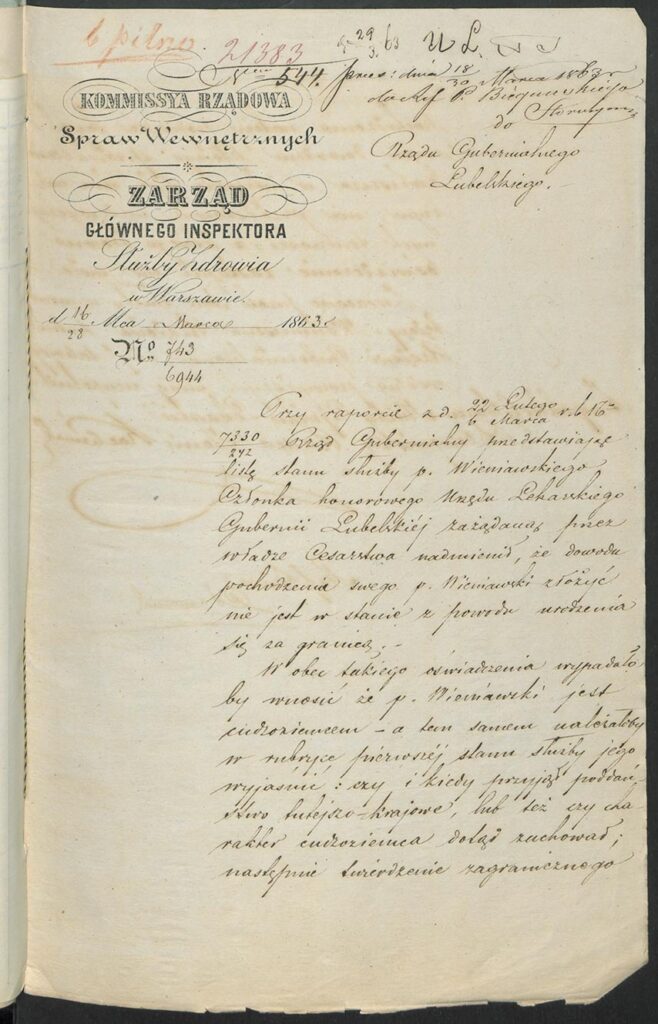 pilno.
21383
29
3. 63
N 544.
pres: dnia 18/30 Marca 1863 r
KOMMISSYA RZĄDOWA
Spraw Wewnętrznych
ZARZĄD
GŁÓWNEGO INSPEKTORA
Służby Zdrowia
w Warszawie.
d 16/28 Mca Marca 1863 r
No 743
6944
do
Rządu Gubernialnego
Lubelskiego.
Przy raporcie z d. 22 Lutego / 6 Marca r. b. No
7330/242 Rząd Gubernialny przedstawiając
listę stanu służby p. Wieniawskiego
Członka honorowego Urzędu Lekarskiego
Gubernii Lubelskiej zażądaną przez
władze Cesarstwa nadmienił, że dowodu
pochodzenia swego p. Wieniawski złożyć
nie jest w stanie z powodu urodzenia
się za granicą. -
W obec takiego oświadczenia wypadało
by wnosić że p. Wieniawski jest
cudzoziemcem - a tem samem należałoby
w rubryce pierwszéj stanu służby jego
wyjaśnić: czy i kiedy przyjął poddań
stwo tutejszo-krajowe, lub też czy cha
rakter cudzoziemca dotąd zachował;
następnie twierdzenie zagranicznego